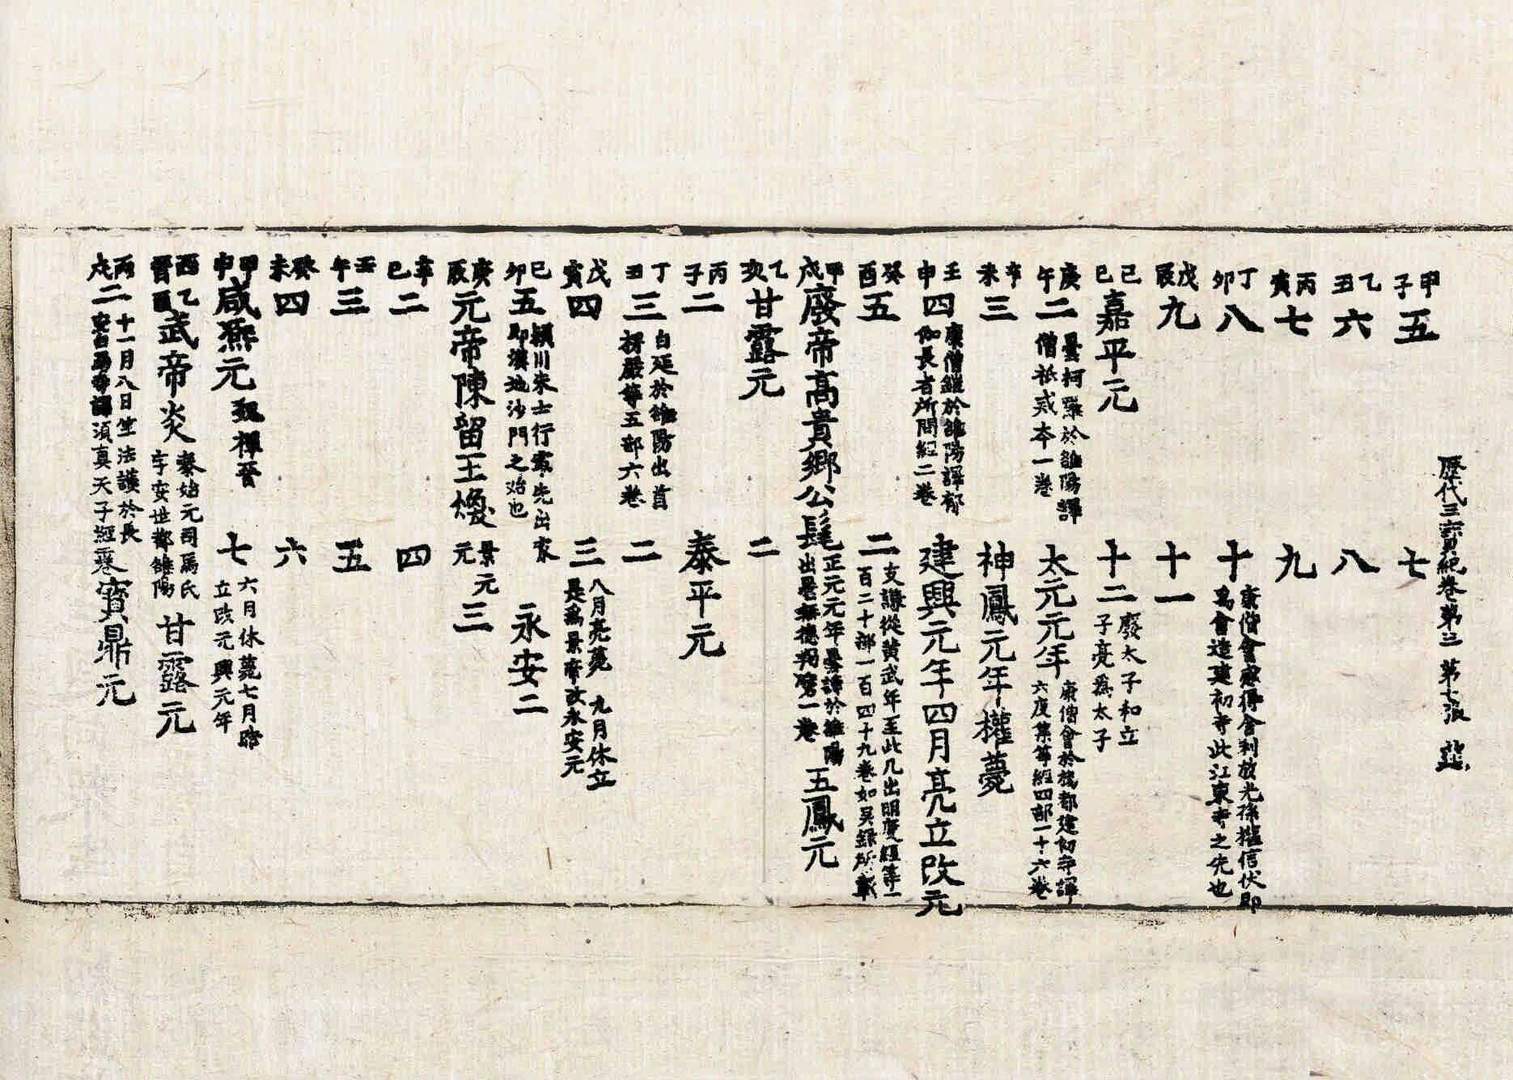 歷代三寶紀卷第三 第七張
甲子五 七
乙丑六 八
丙寅七 九
丁卯八 十 康僧會感得舍利放光孫權信伏即爲會造建初寺此江東寺之先也
戊辰九 十一
己巳嘉平元 十二 廢太子和立子亮爲太子
庚午二 曇柯羅於雒陽譯僧祇戒本一卷 太元元年 康僧會於楊都建初寺譯六度集等經四部一十六卷
辛未三 神鳳元年權薨
壬申四 康僧鎧於雒陽譯郁伽長者所問經二卷 建興元年四月亮立改元
癸酉五 二 支謙從黃武年至此凡出明度經等一百二十部一百四十九卷如吳錄所載
甲戌廢帝高貴鄉公髦 正元元年曇諦於雒陽出曇無德羯磨一卷 五鳳元
乙亥甘露元 二
丙子二 泰平元
丁丑三 白延於雒陽出首楞嚴等五部六卷 二
戊寅四 三 八月亮薨 九月休立是爲景帝改永安元
己卯五 穎川朱士行最先出家即漢地沙門之始也 永安二
庚辰元帝陳留王煥 景元元 三
辛巳二 四
壬午三 五
癸未四 六
甲申咸熙元 魏禪晉 七 六月休薨七月晧立改元興元年
乙酉晉西武帝炎 泰始元司馬氏字安世都雒陽 甘露元
丙戌二 十一月八日竺法護於長安白馬寺譯須真天子經二卷 寶鼎元